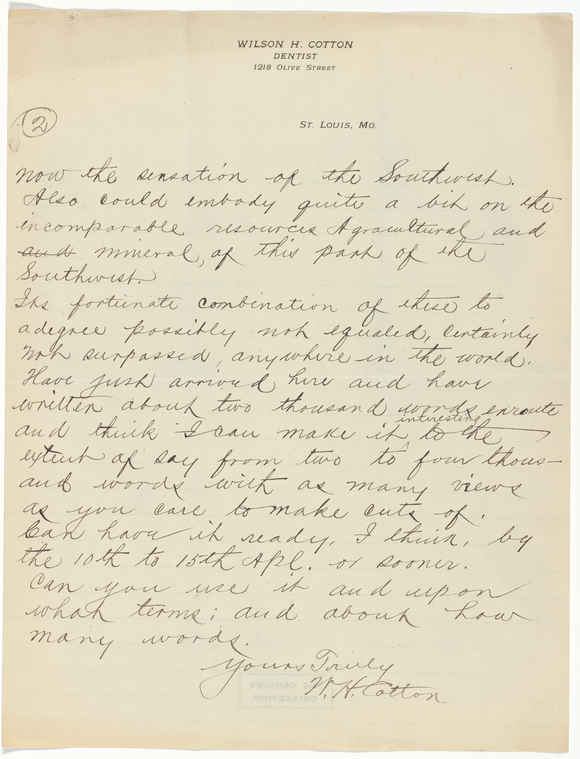 WILSON H. COTTON
DENTIST
1218 OLIVE STREET
2
ST. LOUIS, MO.
now the sensation of the Southwest.
Also could embody quite a bit on the
incomparable risources Agracultural and
and mineral, of this part of the
Southwest.
Its fortunate combination of these to
a degree possibly not equaled, certainly
not surpassed, anywhere in the world.
Have just arrived here and have
written about two thousand words enroute
and think I can make it interesting to the
extent of say from two to four thous-
and words with as many views
as you care to make cuts of.
Can have it ready, I think, by
the 10th to 15th Apl. or sooner.
Can you use it and upon
what terms; and about how
many words.
Yours Truly
W. H. Cotton
THE CENTURY
COLLECTION